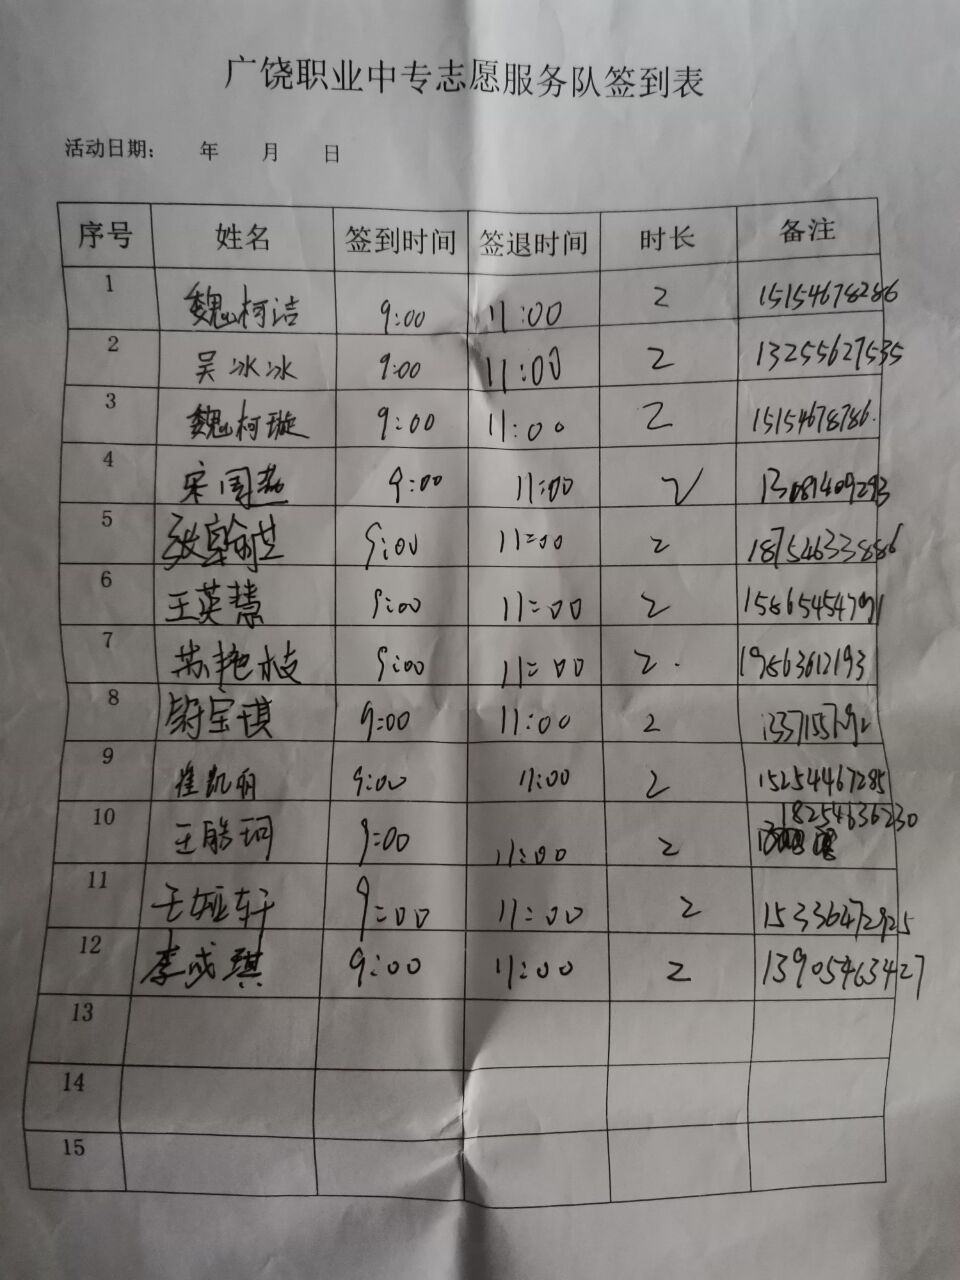 广饶职业中专志愿服务队签到表
活动日期： 年 月 日
序号 姓名 签到时间 签退时间 时长 备注
1 魏柯洁 9:00 11:00 2 15154678286
2 吴冰冰 9:00 11:00 2 13255627535
3 魏柯璇 9:00 11:00 2 15154678786.
4 宋国燕 9:00 11:00 2 13081409293
5 9:00 11:00 2 18754633886
6 王英慧 9:00 11:00 2 15865454791
7 苏艳枝 9:00 11:00 2. 19563612193
8 宝琪 9:00 11:00 2
9 崔凯丽 9:00 11:00 2 15254467285
10 王 珂 9:00 11:00 2 18254636230
11 王娅轩 9:00 11:00 2 15336472925
12 李成琪 9:00 11:00 2 13905463427
13
14
15